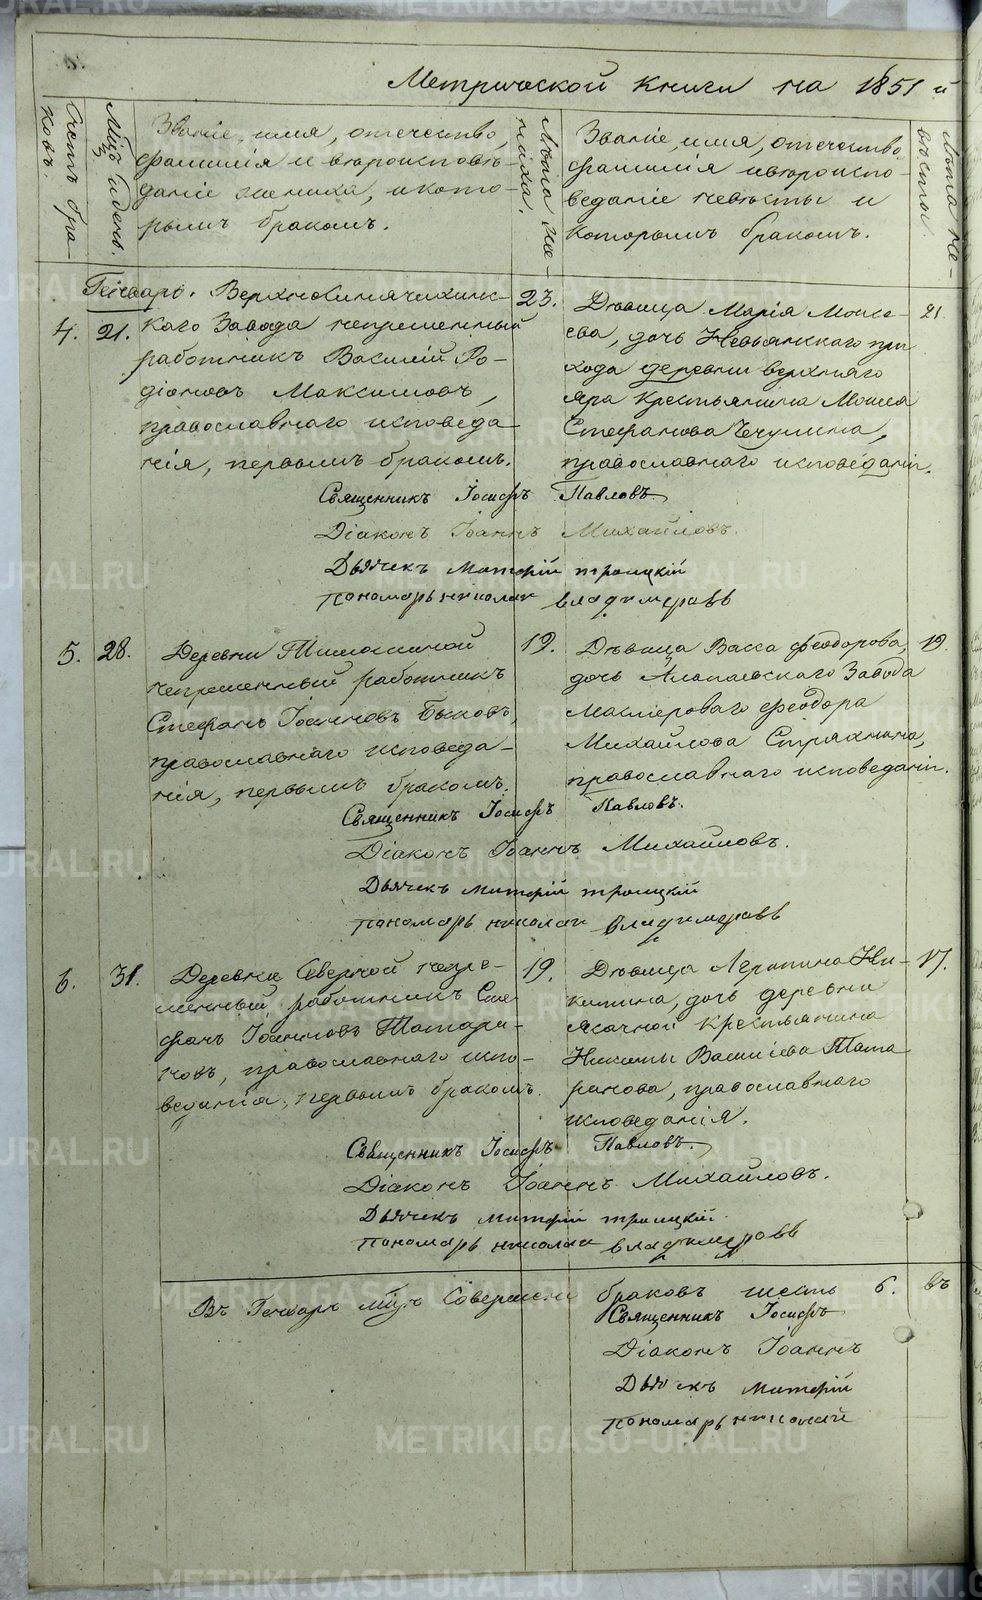 Метрической книги на 1851 й
Счетъ бра-
ковъ.
Мцъ и день.
Званіе, имя, отечество,
фамилія и вѣроисповѣ-
даніе жениха, и кото-
рымъ бракомъ.
Лѣта же-
ниха.
Званіе, имя, отечество
фамилія и вѣроиспо-
веданіе невѣсты и
которымъ бракомъ.
Лѣта не-
вѣсты.
Генварь. Верхнесинячихинс-
4. 21. каго Завода непременный
работникъ Василій Ро-
діоновъ Максимовъ,
православнаго исповеда-
нія, первымъ бракомъ.
23.
Дѣвица Марія Моисе-
ева, дочь Невьянскаго при
хода деревни верхняго
яра крестьянина Моисея
Стефанова Чечулина,
православнаго исповеданія.
21
Священникъ Іосифъ Павловъ.
Діаконъ Іоаннъ Михайловъ.
Дьячекъ Митрофій троицкій
пономарь николай владимеровъ
5. 28. Деревни Тимошиной
непременный работникъ
Стефанъ Іоанновъ Быковъ,
православнаго исповеда-
нія, первымъ бракомъ.
19.
Дѣвица Васса феодорова,
дочь Алапаевскаго Завода
мастероваго феодора
Михайлова Стряхнина,
православнаго исповеданія.
19.
Священникъ Іосифъ Павловъ.
Діаконъ Іоаннъ Михайловъ.
Дьячекъ троицкій
пономарь николай владимеровъ
6. 31. Деревни Северной непре-
менный работникъ Сте-
фанъ Іоанновъ Татари-
новъ, православнаго испо-
веданія, первымъ бракомъ.
19.
Дѣвица Агрипина Ни-
китина, дочь деревни
Ясачной крестьянина
Никиты Василіева Тата
ринова, православнаго
исповеданія.
17.
Священникъ Іосифъ Павловъ.
Діаконъ Іоаннъ Михайловъ.
Дьячекъ троицкій
пономарь николай владимеровъ
Въ Генварѣ мцѣ Совершено браковъ шесть 6. въ
Священникъ Іосифъ
Діаконъ Іоаннъ
Дьячекъ
пономарь николай
METRIKI.GASO-URAL.RU